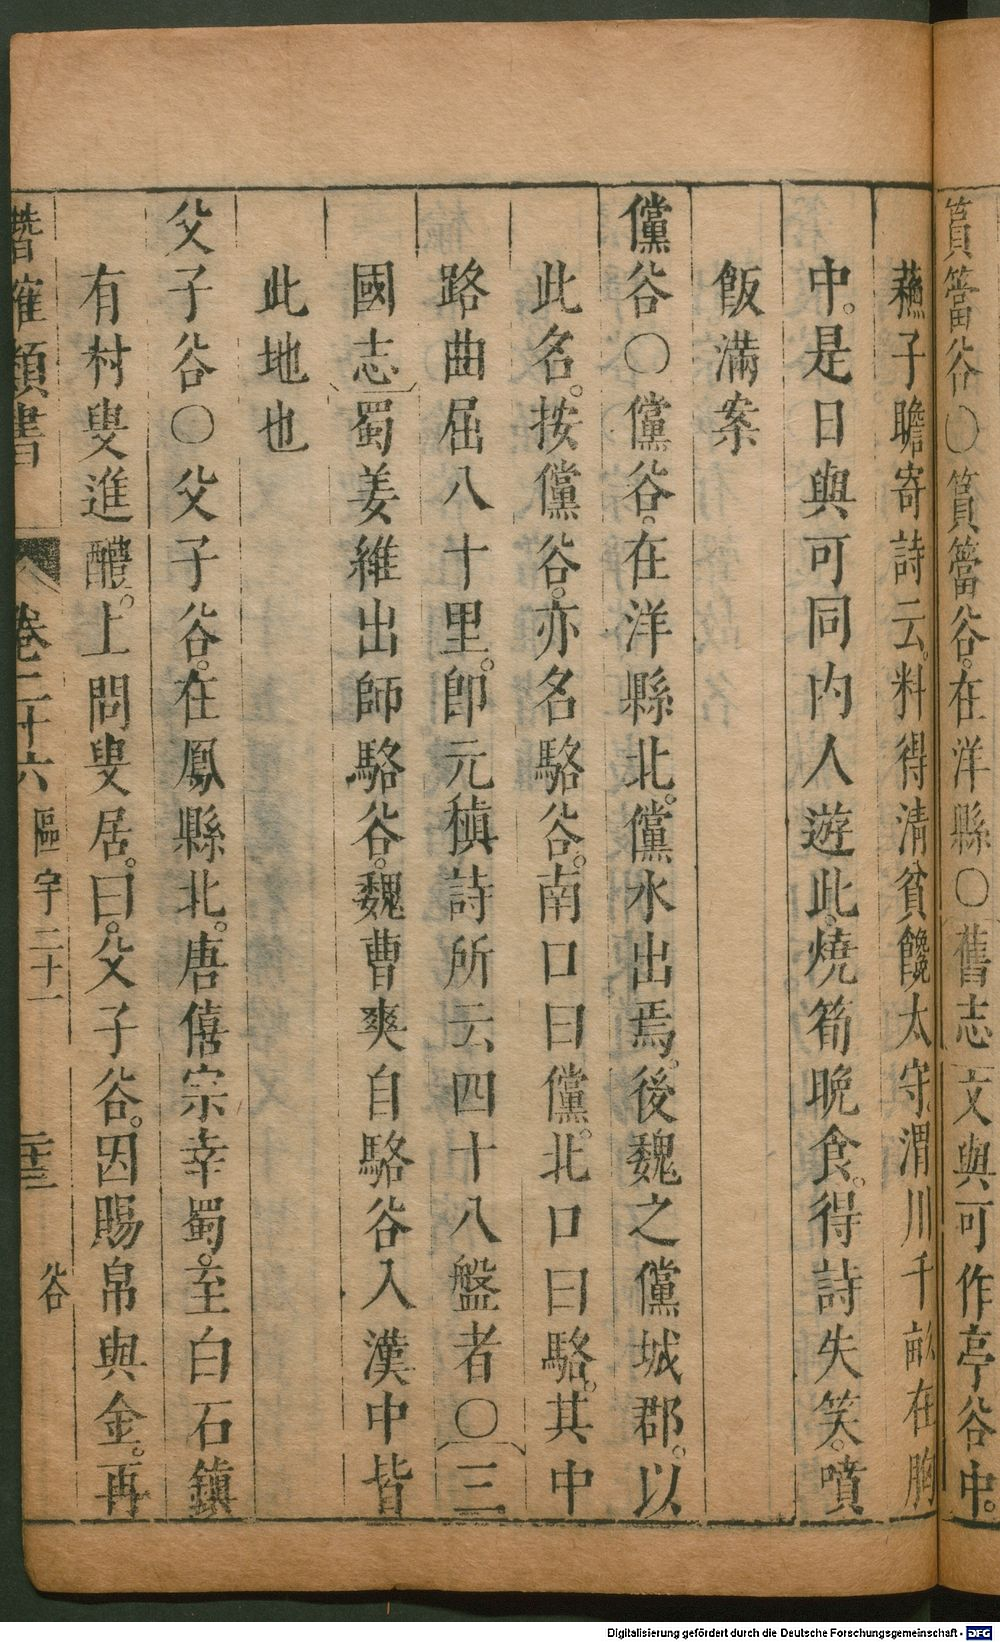 篔簹谷〇篔簹谷。在洋縣〇舊志文與可作亭谷中。
蘓子瞻寄詩云。料得清貧饞太守。渭川千畝在胸
中。是日與可同内人遊此。燒筍晚食。得詩失笑。噴
飯滿案
儻谷〇儻谷。在洋縣北。儻水出焉。後魏之儻城郡。以
此名。按儻谷。亦名駱谷。南口曰儻。北口曰駱。其中
路曲屈八十里。卽元稹詩所云四十八盤者〇三
國志蜀姜維出師駱谷。魏曹爽自駱谷入漢中皆
此地也
父子谷〇父子谷。在鳳縣北。唐僖宗幸蜀。至白石鎮
有村叟進醴。上問叟居。曰。父子谷。因賜帛與金。再
潛確類書 卷二十六 區宇二十一 二十三 谷
Digitalisierung gefördert durch die Deutsche Forschungsgemeinschaft - DFG